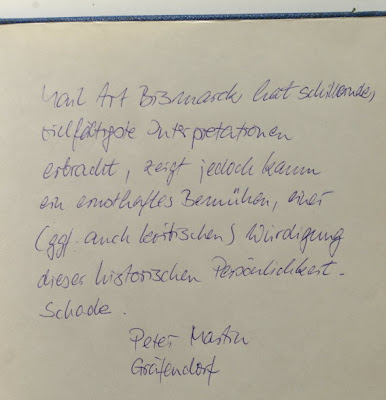 Mail Art Bismarck hat schillernde,
vielfältigste Interpretationen
erbracht, zeigt jedoch kaum
ein ernsthaftes Bemühen, einer
(ggf. auch kritischen) Würdigung
dieser historischen Persönlichkeit.
Schade.
Peter Martin
Gräfendorf